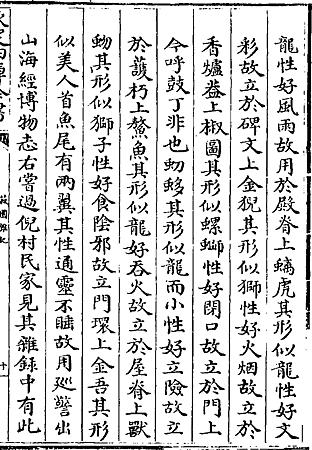 龍性好風雨故用於殿脊上螭虎其形似龍性好文
彩故立於碑文上金猊其形似獅性好火烟故立於
香爐葢上椒圖其形似螺螄性好閉口故立於門上
今呼鼓丁非也虭蛥其形似龍而小性好立險故立
於護朽上鰲魚其形似龍好吞火故立於屋脊上獸
蚴其形似獅子性好食陰邪故立門環上金吾其形
似美人首魚尾有兩翼其性通靈不睡故用廵警出
山海經博物志右嘗過倪村民家見其雜録中有此
菽園雜記